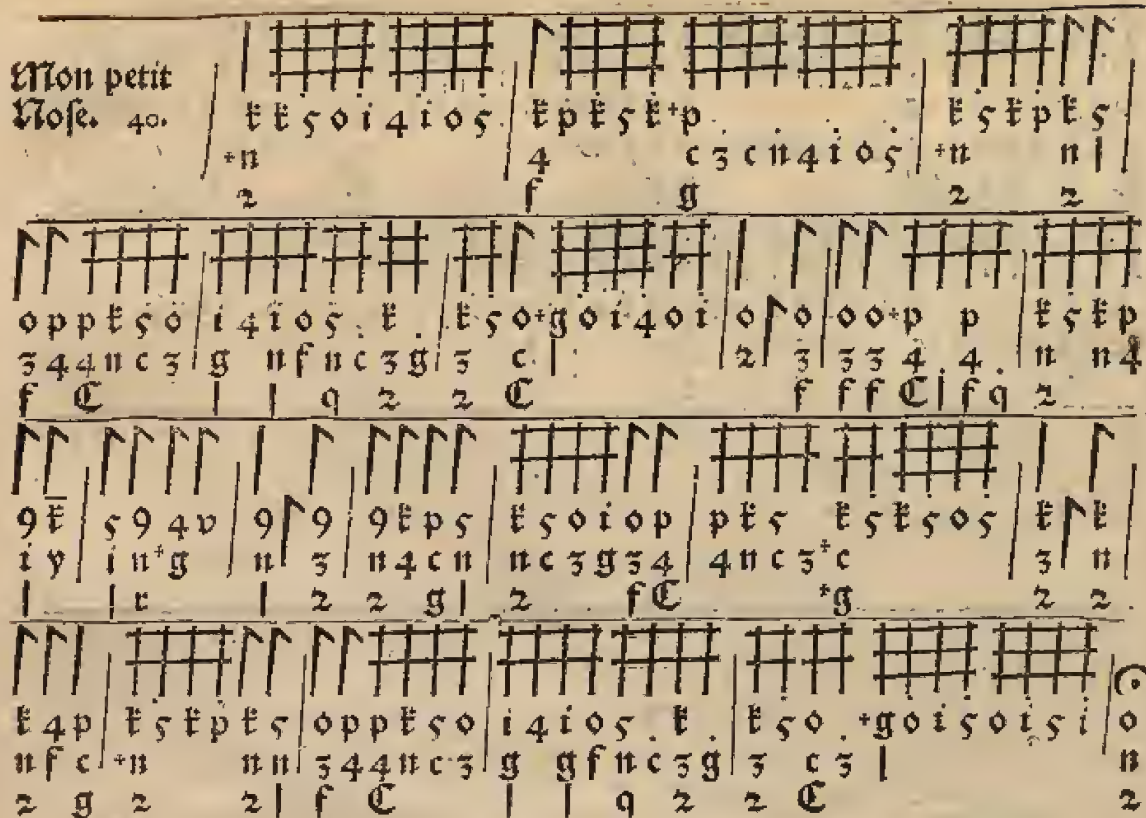 Mon petit
Nose. 40.
k k 5 o i 4 i o 5 k p k 5 k +p k 5 k p k 5
+n 4 c 3 c n 4 i o 5 +n n |
2 f g 2 2
o p p k 5 o i 4 i o 5 k k 5 o +g o i 4 o i o o o o +p p k 5 k p
3 4 4 n c 3 g n f n c 3 g 3 c | 2 3 3 3 4 4 n n 4
f C | | q 2 2 C f f f C | f q 2
9 k̄ 5 9 4 v 9 9 9 k p 5 k 5 o i o p p k 5 k 5 k 5 o 5 k k
i y i n +g n 3 n 4 c n n c 3 g 3 4 4 n c 3 +c 3 n
| | r | 2 2 g | 2 f C +g 2 2
k 4 p k 5 k p k 5 o p p k 5 o i 4 i o 5 k k 5 o +g o i 5 o i 5 i o
n f c +n n n 3 4 4 n c 3 g g f n c 3 g 3 c 3 | n
2 g 2 2 | f C | | q 2 2 C 2